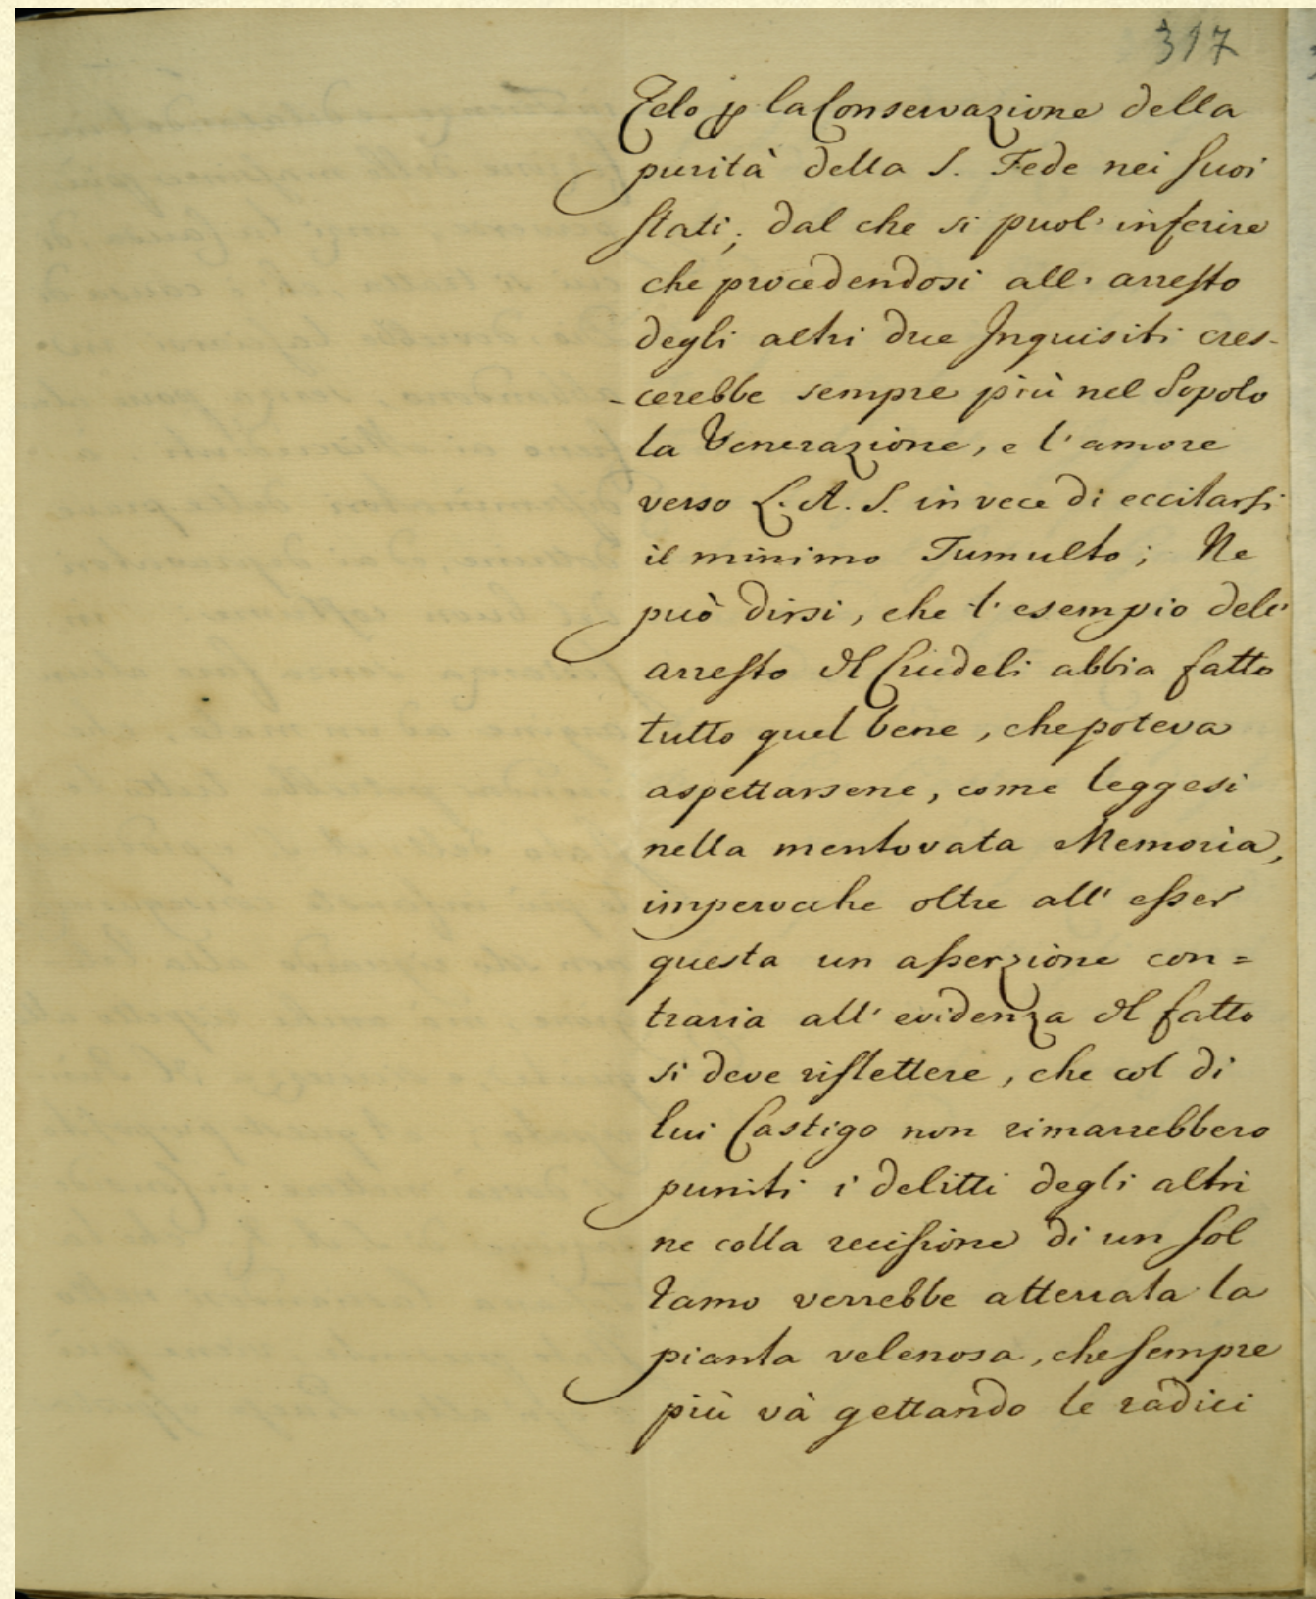 317
Zelo p la Conservazione della
purità della S. Fede nei suoi
Stati; dal che si puol' inferire
che procedendosi all' arresto
degli altri due Inquisiti cres-
-cerebbe sempre più nel Popolo
la Venerazione, e l' amore
verso S. A. S. in vece di eccitarsi
il minimo Tumulto; Ne
può dirsi, che l' esempio dell'
arresto del Crudeli abbia fatto
tutto quel bene, che poteva
aspettarsene, come leggesi
nella mentovata Memoria,
imperocche oltre all' esser
questa un asserzione con=
traria all' evidenza del fatto
si deve riflettere, che col di
lui Castigo non rimarrebbero
puniti i delitti degli altri
ne colla recisione di un sol
ramo verrebbe atterrata la
pianta velenosa, che sempre
più và gettando le radici